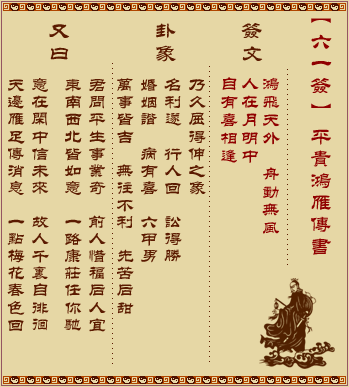 【六一簽】 平貴鴻雁傳書
簽文
鴻飛天外 舟動無風
人在月明中
自有喜相逢
卦象
乃久屈得伸之象
名利遂 行人回 訟得勝
婚姻諧 病有喜 六甲男
萬事皆吉 無往不利 先苦后甜
又曰
君問平生事業奇 前人惜福后人宜
東南西北皆如意 一路康莊任你馳
意在閑中信未來 故人千裏自徘徊
天邊雁足傳消息 一點梅花春色回